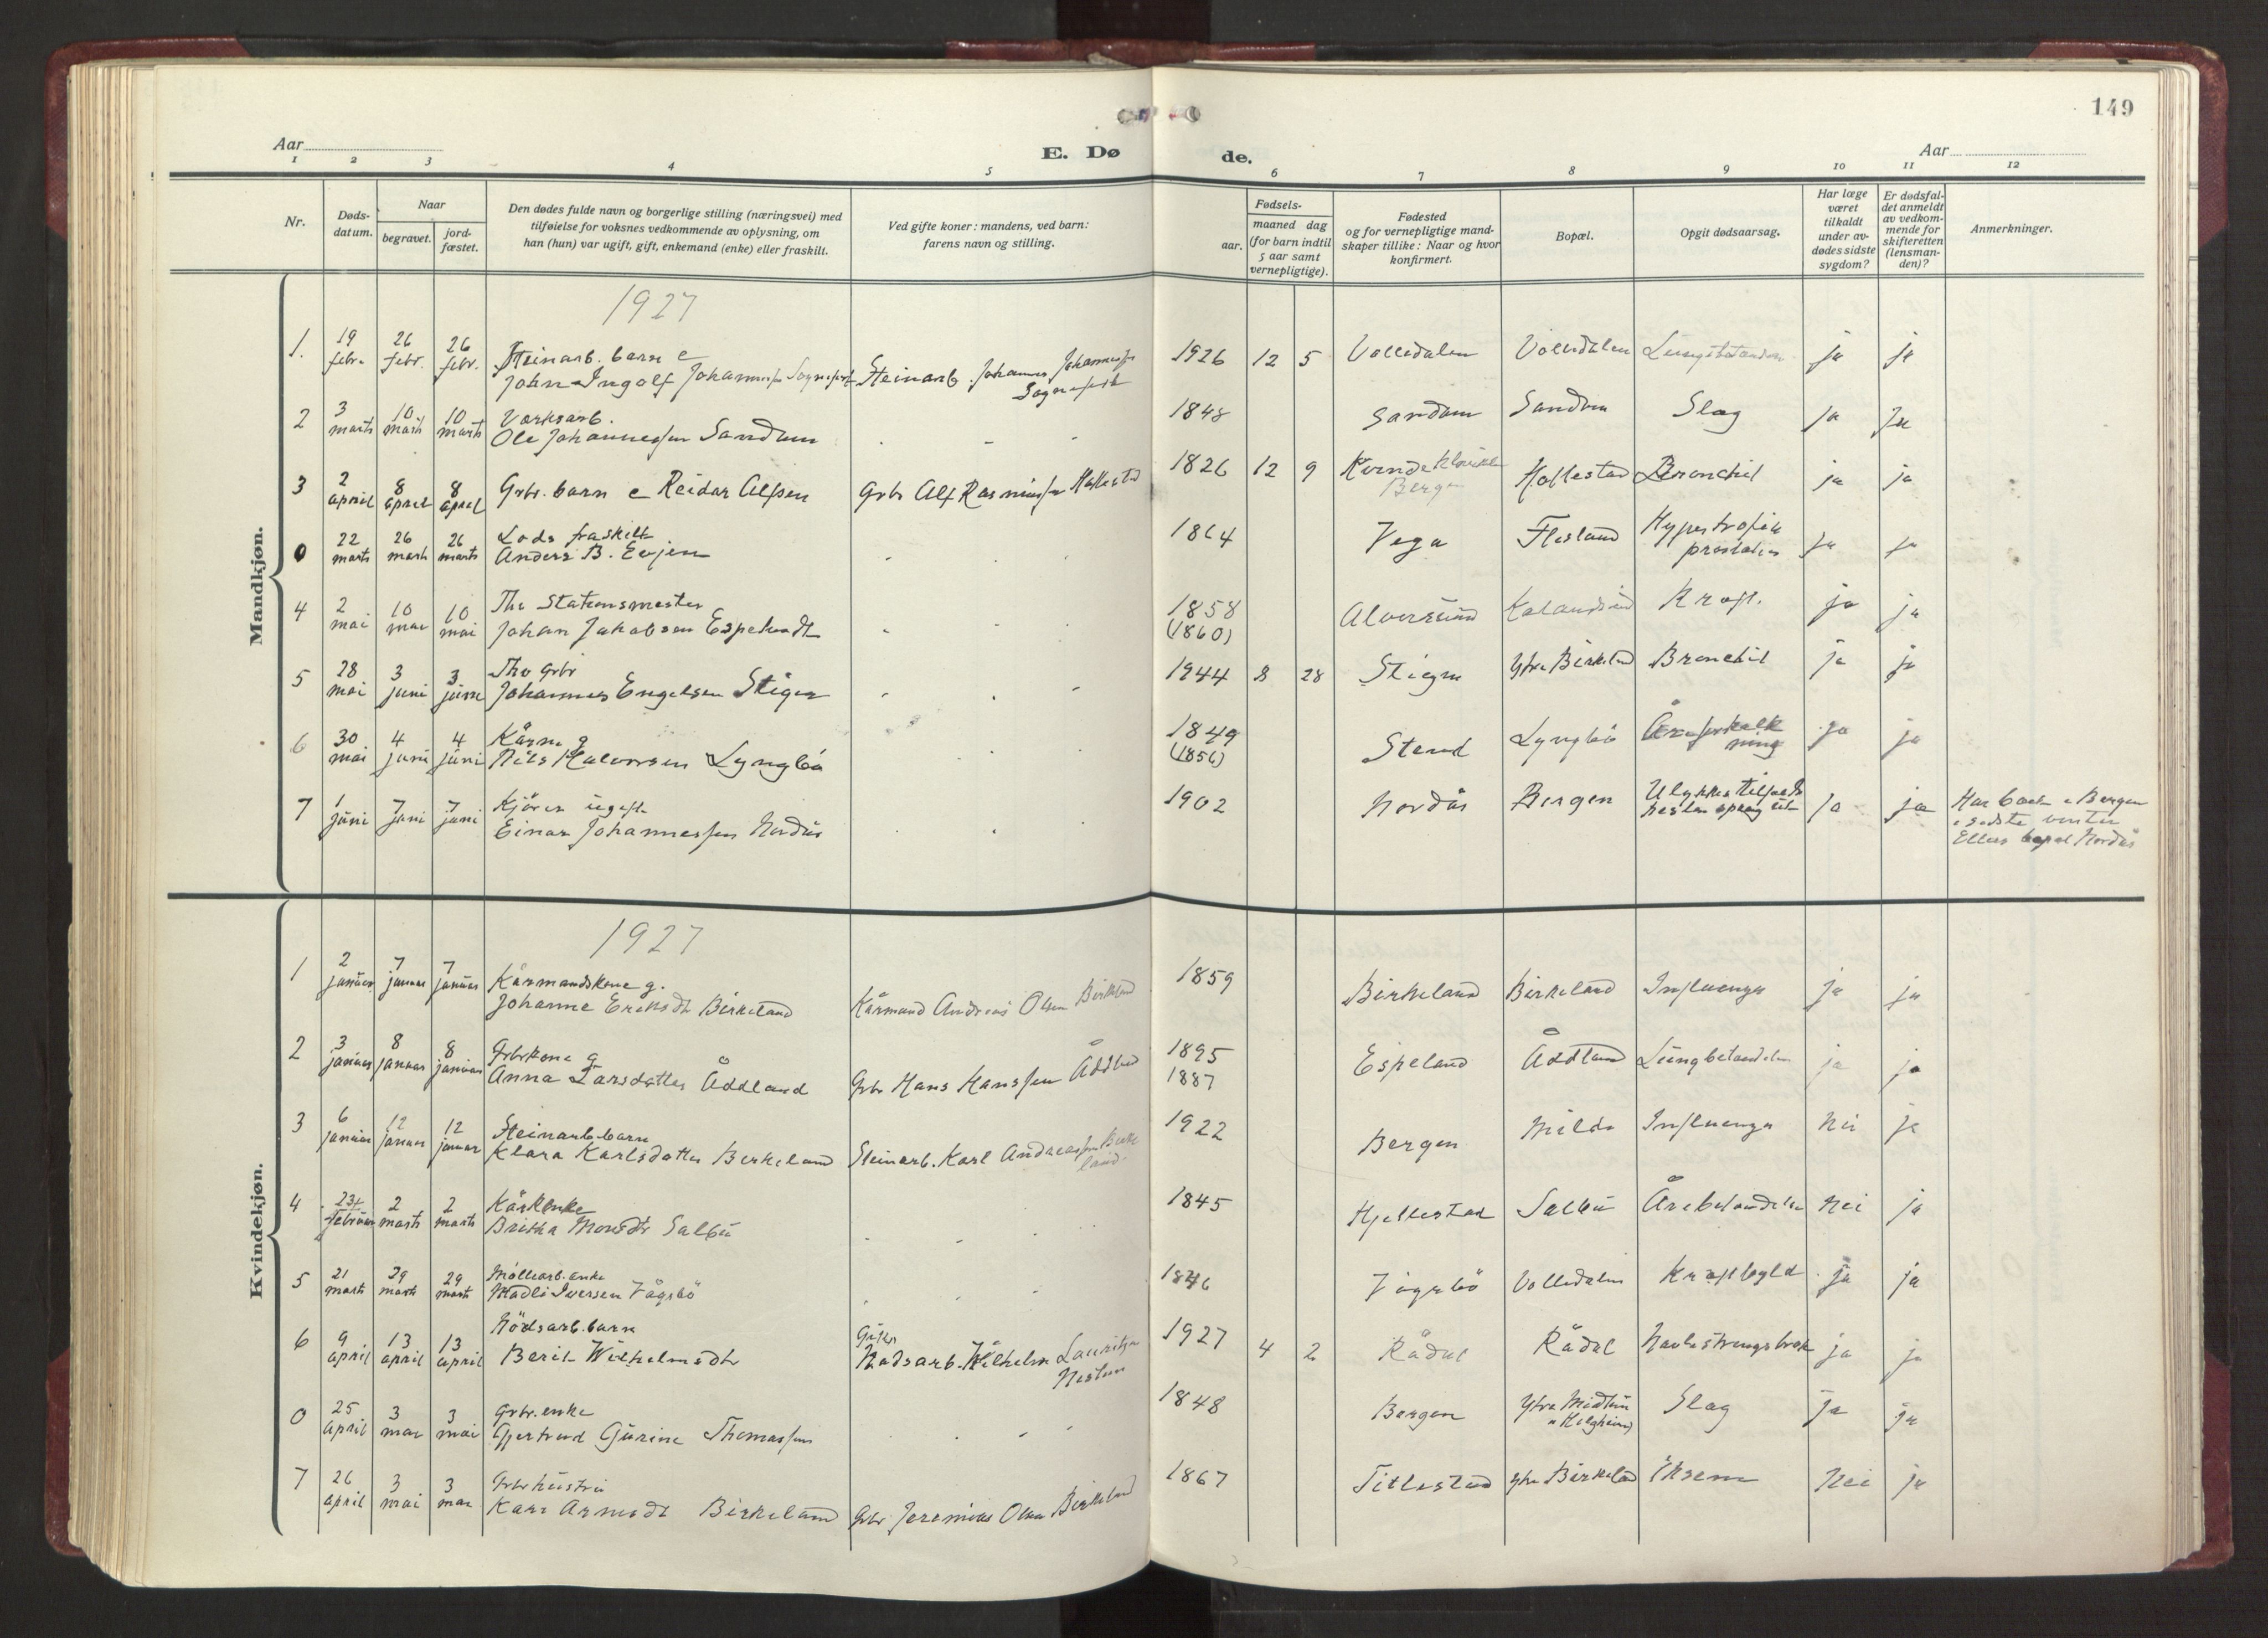 149
Aar
E. Døde.
Aar
1 2 3 4 5 6 7 8 9 10 11 12
Nr.
Døds-datum.
Naar
begravet.
jord-fæstet.
Den dødes fulde navn og borgerlige stilling (næringsvei) med
tilføielse for voksnes vedkommende av oplysning, om
han (hun) var ugift, gift, enkemand (enke) eller fraskilt.
Ved gifte koner: mandens, ved barn:
farens navn og stilling.
Fødsels-
aar.
maaned dag
(for barn indtil
5 aar samt
vernepligtige).
Fødested
og for vernepligtige mand-
skaper tillike: Naar og hvor
konfirmert.
Bopæl.
Opgit dødsaarsag.
Har læge
været
tilkaldt
under av-
dødes sidste
sygdom?
Er dødsfal-
det anmeldt
av vedkom-
mende for
skifteretten
(lensman-
den)?
Anmerkninger.
Mandkjøn.
1927
1. 19 febr. 26 febr. 26 febr. Steinarb. barn e
John Ingolf Steinarb. Johannes 1926 12 5 Volledalen Volledalen ja ja
2 3 marts 10 marts 10 marts
Ole Johannessen 1848 Slag ja ja
3 2 april 8 april 8 april Grbr. barn e Reidar Alfsen Grbr Alf Rasmussen Hollestad 1826 12 9 Bergen Hollestad Bronchit ja ja
0 22 marts 26 marts 26 marts Lods fraskilt
Anders B. Evjen 1864 Vega Flesland Hypertrofia
prostatis ja ja
4 2 mai 10 mai 10 mai Stationsmester
Johan Jakobsen 1858
(1860) Alversund Kalandseid Kræft. ja ja
5 28 mai 3 juni 3 juni Grbr
Johannes Engelsen Stigen 1944 8 28 Stigen Ytre Birkeland Bronchit ja ja
6 30 mai 4 juni 4 juni Kårm g
Nils Halvorsen Lyngbö 1849
(1856) Stend Lyngbö Åreforkalk
ning ja ja
7 1 juni 7 juni 7 juni Kjörer ugift
Einar Johannessen Nordås 1902 Nordås Bergen Ulykkestilfælde
hesten sprang ut ja ja Har boet i Bergen
i sidste vinter
Ellers bopæl Nordås
Kvindekjøn.
1927
1 2 januar 7 januar 7 januar Kårmandskone g.
Johanne Eriksdt Birkeland Kårmand Andreas Olsen Birkeland 1859 Birkeland Birkeland Influenza ja ja
2 3 januar 8 januar 8 januar Grbrkone g
Anna Larsdatter Åddland Grbr Hans Hanssen Åddland 1895
1887 Espeland Åddland Lungbetændelse ja ja
3 6 januar 12 januar 12 januar Steinarb. barn
Klara Karlsdatter Birkeland Steinarb. Karl Andreassen Birke
land 1922 Bergen Milde Influenza Nei ja
4 februar 2 marts 2 marts
Britha Monsdtr Salbu 1845 Hjellestad Salbu Årebetændelse Nei ja
5 21 marts 29 marts 29 marts Möllearb. enke
Madli Iversen Vågsbö 1846 Vågsbö Volledalen Kræftbyld ja ja
6 9 april 13 april 13 april Nödsarb. barn
Berit Wilhelmsdtr Nödsarb. Wilhelm Lauritz
Nestun 1927 4 2 Rådal Rådal Navlestrengsbrok ja ja
0 25 april 3 mai 3 mai Grbr. enke
Gjertrud Gurine Thomassen 1848 Bergen Ytre Midtun Slag ja ja
7 26 april 3 mai 3 mai Grbr hustru
Kari Arnesdt Birkeland Grbr Jeremias Olsen Birkeland 1867 Titlestad Ytre Birkeland Eksem Nei ja